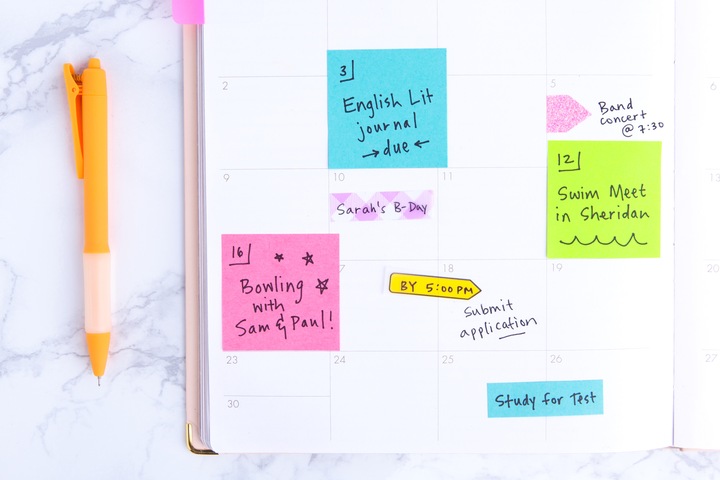 2
3
English Lit
journal
→due←
5
Band
concert
@ 7:30
6
9
10
Sarah's B-Day
11
12
Swim Meet
in Sheridan
13
16
Bowling
with
Sam & Paul!
7
BY 5:00PM
18
Submit
application
19
20
23
24
25
26
Study for Test
27
30